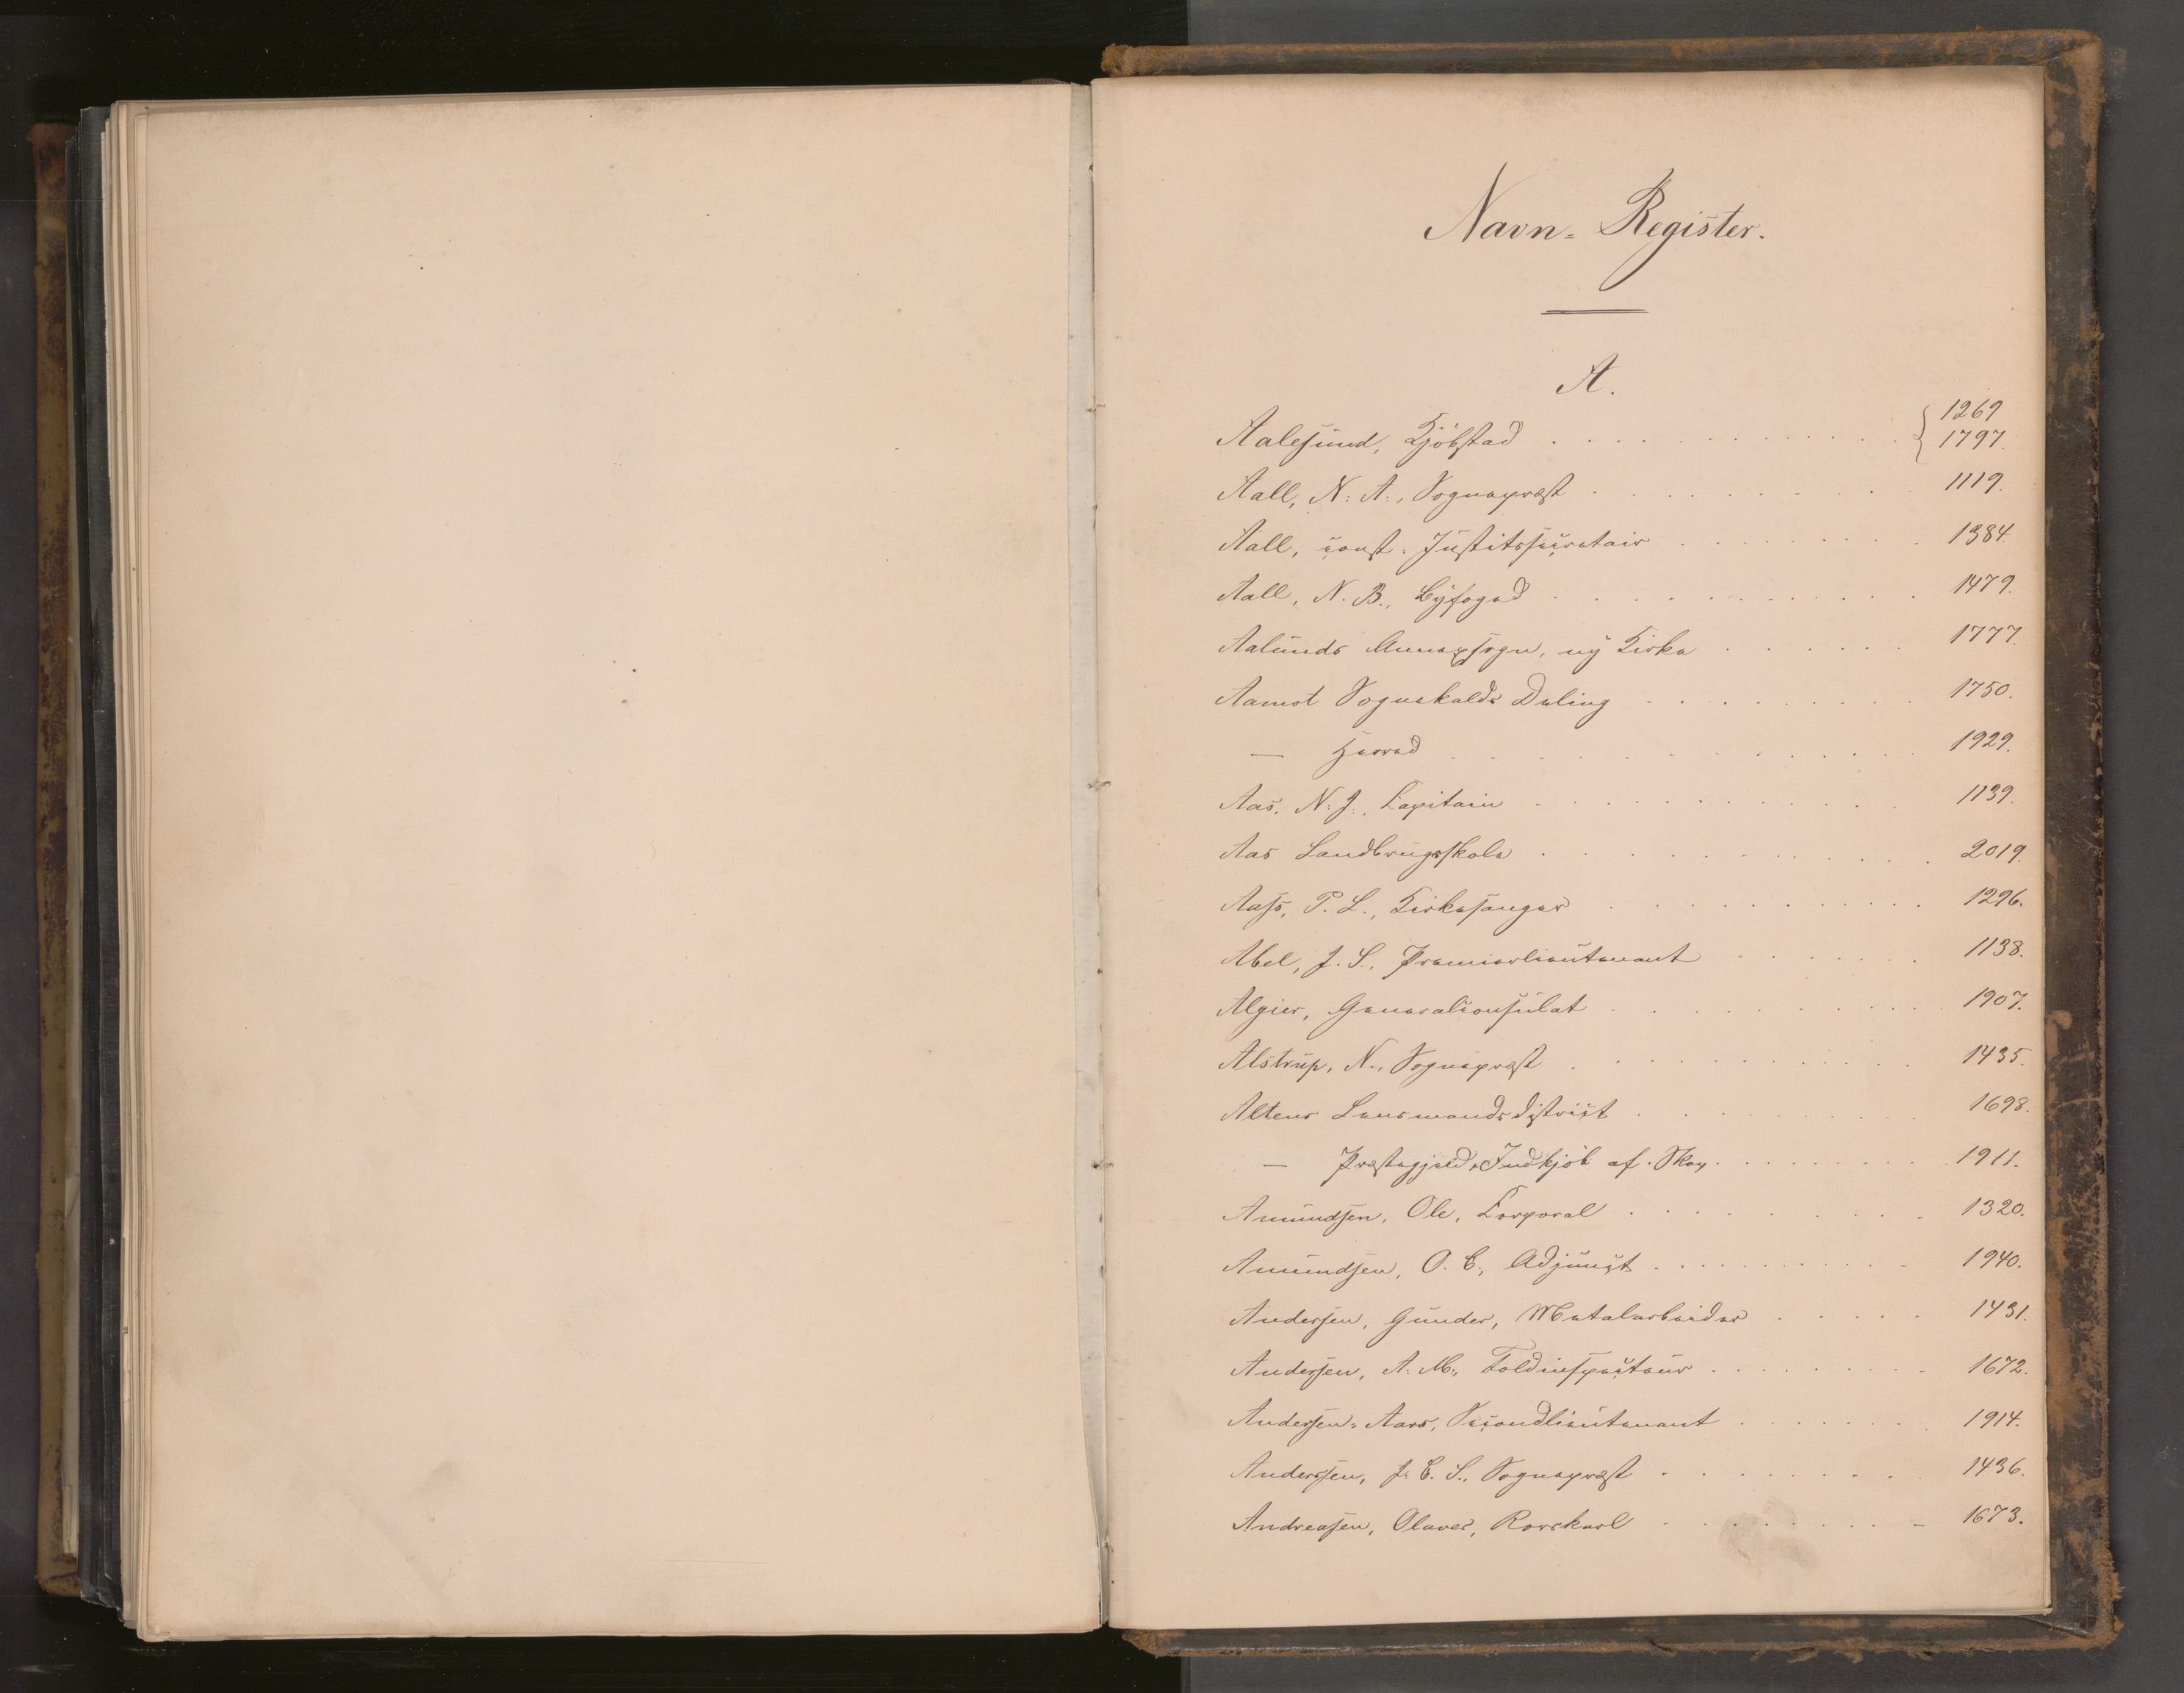 Navn-Register.
A.
Aalesund, Kjöbstad . . . . . . . . . . . . { 1269 1797.
Aall, N. A., Sognepræst . . . . . . . . . . 1119.
Aall, const. Justitssecretair . . . . . . . . 1384.
Aall, N. B., Byfoged . . . . . . . . . . . . 1479.
Aalunds Annexsogn, ny Kirke . . . . . . 1777.
Aamot Sognekalds Deling . . . . . . . . . 1750.
— Herred . . . . . . . . . . . . . 1929.
Aas, N. J., Capitain . . . . . . . . . . . . 1139.
Aas Landbrugsskole . . . . . . . . . . . . 2019.
Aass, P. L., Kirkesanger . . . . . . . . . . 1296.
Abel, J. S., Premierlieutenant . . . . . . . 1138.
Algier, Generalconsulat . . . . . . . . . . 1907.
Alstrup, N., Sognepræst . . . . . . . . . . 1435.
Altens Lensmandsdistrict . . . . . . . . . 1698.
— Præstegjeld, Indkjöb af Skov . . . . . . . . 1911.
Amundsen, Ole, Corporal . . . . . . . . . . 1320.
Amundsen, O. C., Adjunct . . . . . . . . . . 1940.
Andersen, Gunder, Metalarbeider . . . . . 1431.
Andersen, A. M., Toldinspecteur . . . . . . . . 1672.
Andersen-Aars, Secondlieutenant . . . . . . . 1914.
Anderssen, J. C. S., Sognepræst . . . . . . . . 1436.
Andreasen, Olaves, Rorskarl . . . . . . . . . 1673.